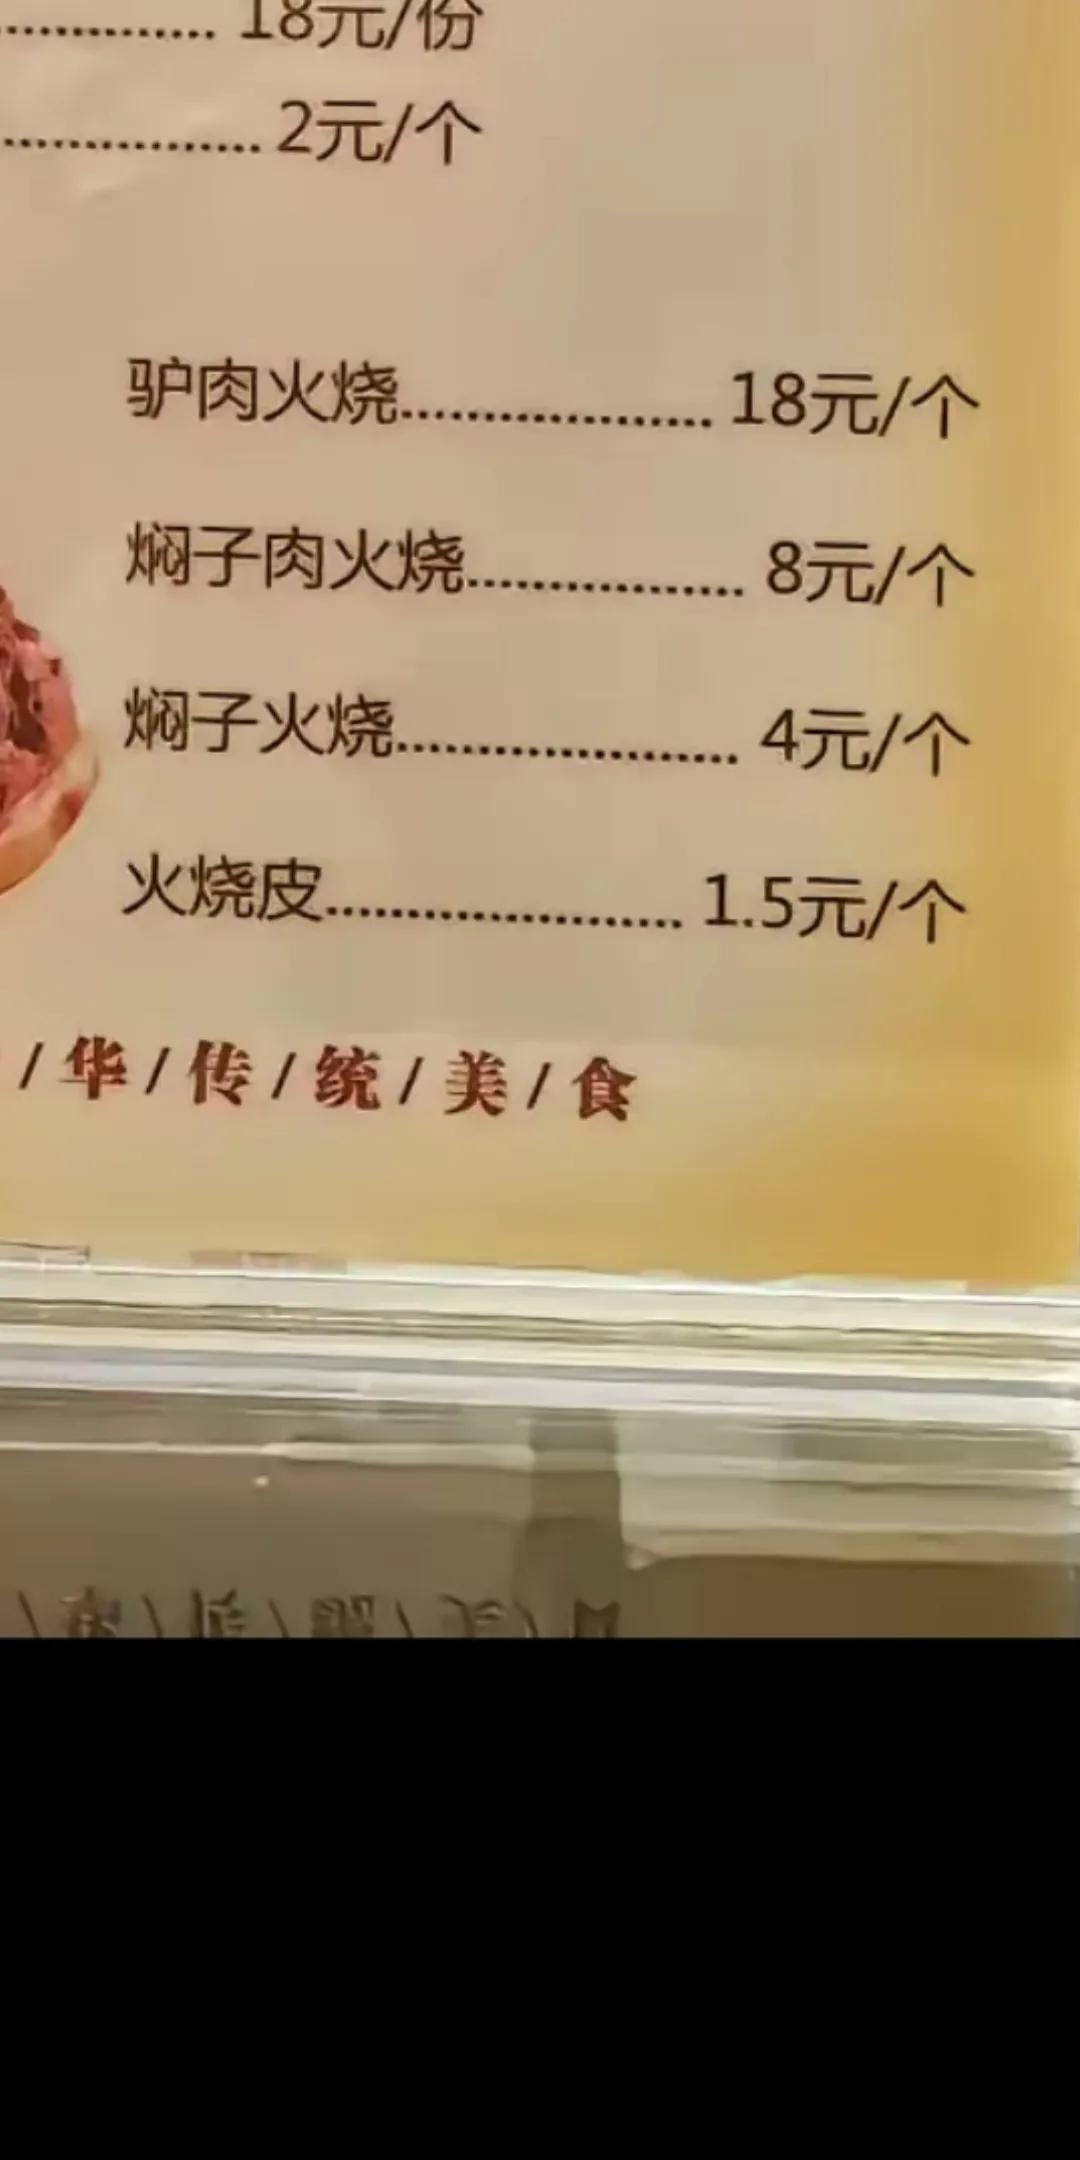 18元/份
2元/个
驴肉火烧 18元/个
焖子肉火烧 8元/个
焖子火烧 4元/个
火烧皮 1.5元/个
/华/传/统/美/食